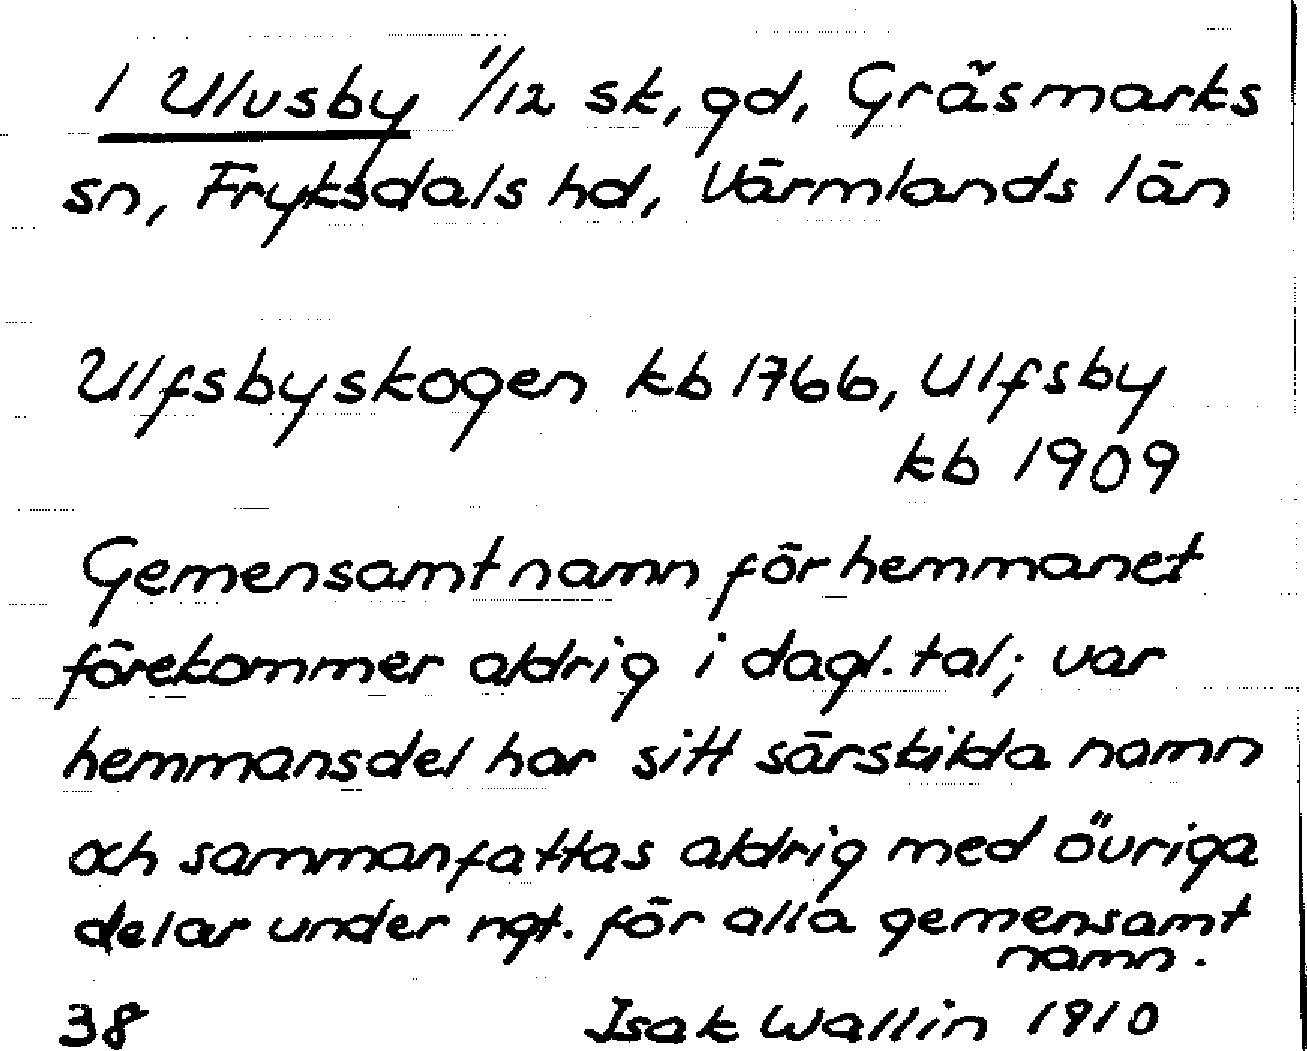 1 Ulvsby 1/12 sk, gd, Gräsmarks
sn, Fryksdals hd, Värmlands län
Ulfsbyskogen kb 1766, Ulfsby
kb 1909
Gemensamt namn för hemmanet
förekommer aldrig i dagl. tal; var
hemmansdel har sitt särskilda namn
och sammanfattas aldrig med övriga
delar under ngt. för alla gemensamt
namn.
38 Isak Wallin 1910